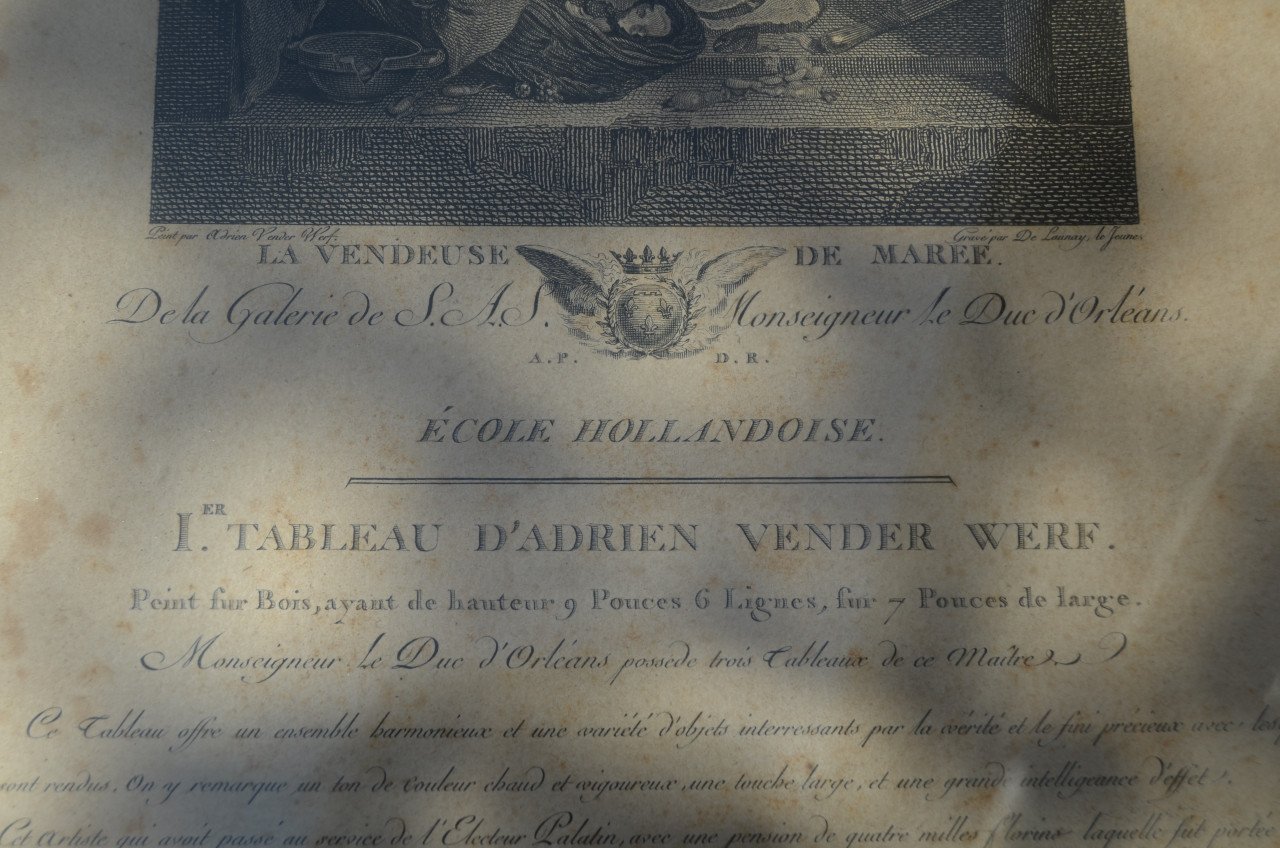 Peint par Adrien Vender Werf. Gravé par De Launay, le Jeune.
LA VENDEUSE DE MARÉE.
De la Galerie de S.A.S. Monseigneur le Duc d'Orléans.
A. P. D. R.
ÉCOLE HOLLANDOISE.
I.ER TABLEAU D'ADRIEN VENDER WERF.
Peint sur Bois, ayant de hauteur 9 Pouces 6 Lignes, sur 7 Pouces de large.
Monseigneur le Duc d'Orléans possède trois Tableaux de ce Maître.
Ce Tableau offre un ensemble harmonieux et une variété d'objets interressants par la vérité et le fini précieux avec
sont rendus. On y remarque un ton de couleur chaud et vigoureux, une touche large, et une grande intelligeance d'effet.
Cet Artiste qui avoit passé au service de l'Electeur Palatin, avec une pension de quatre milles florins laquelle fut portée